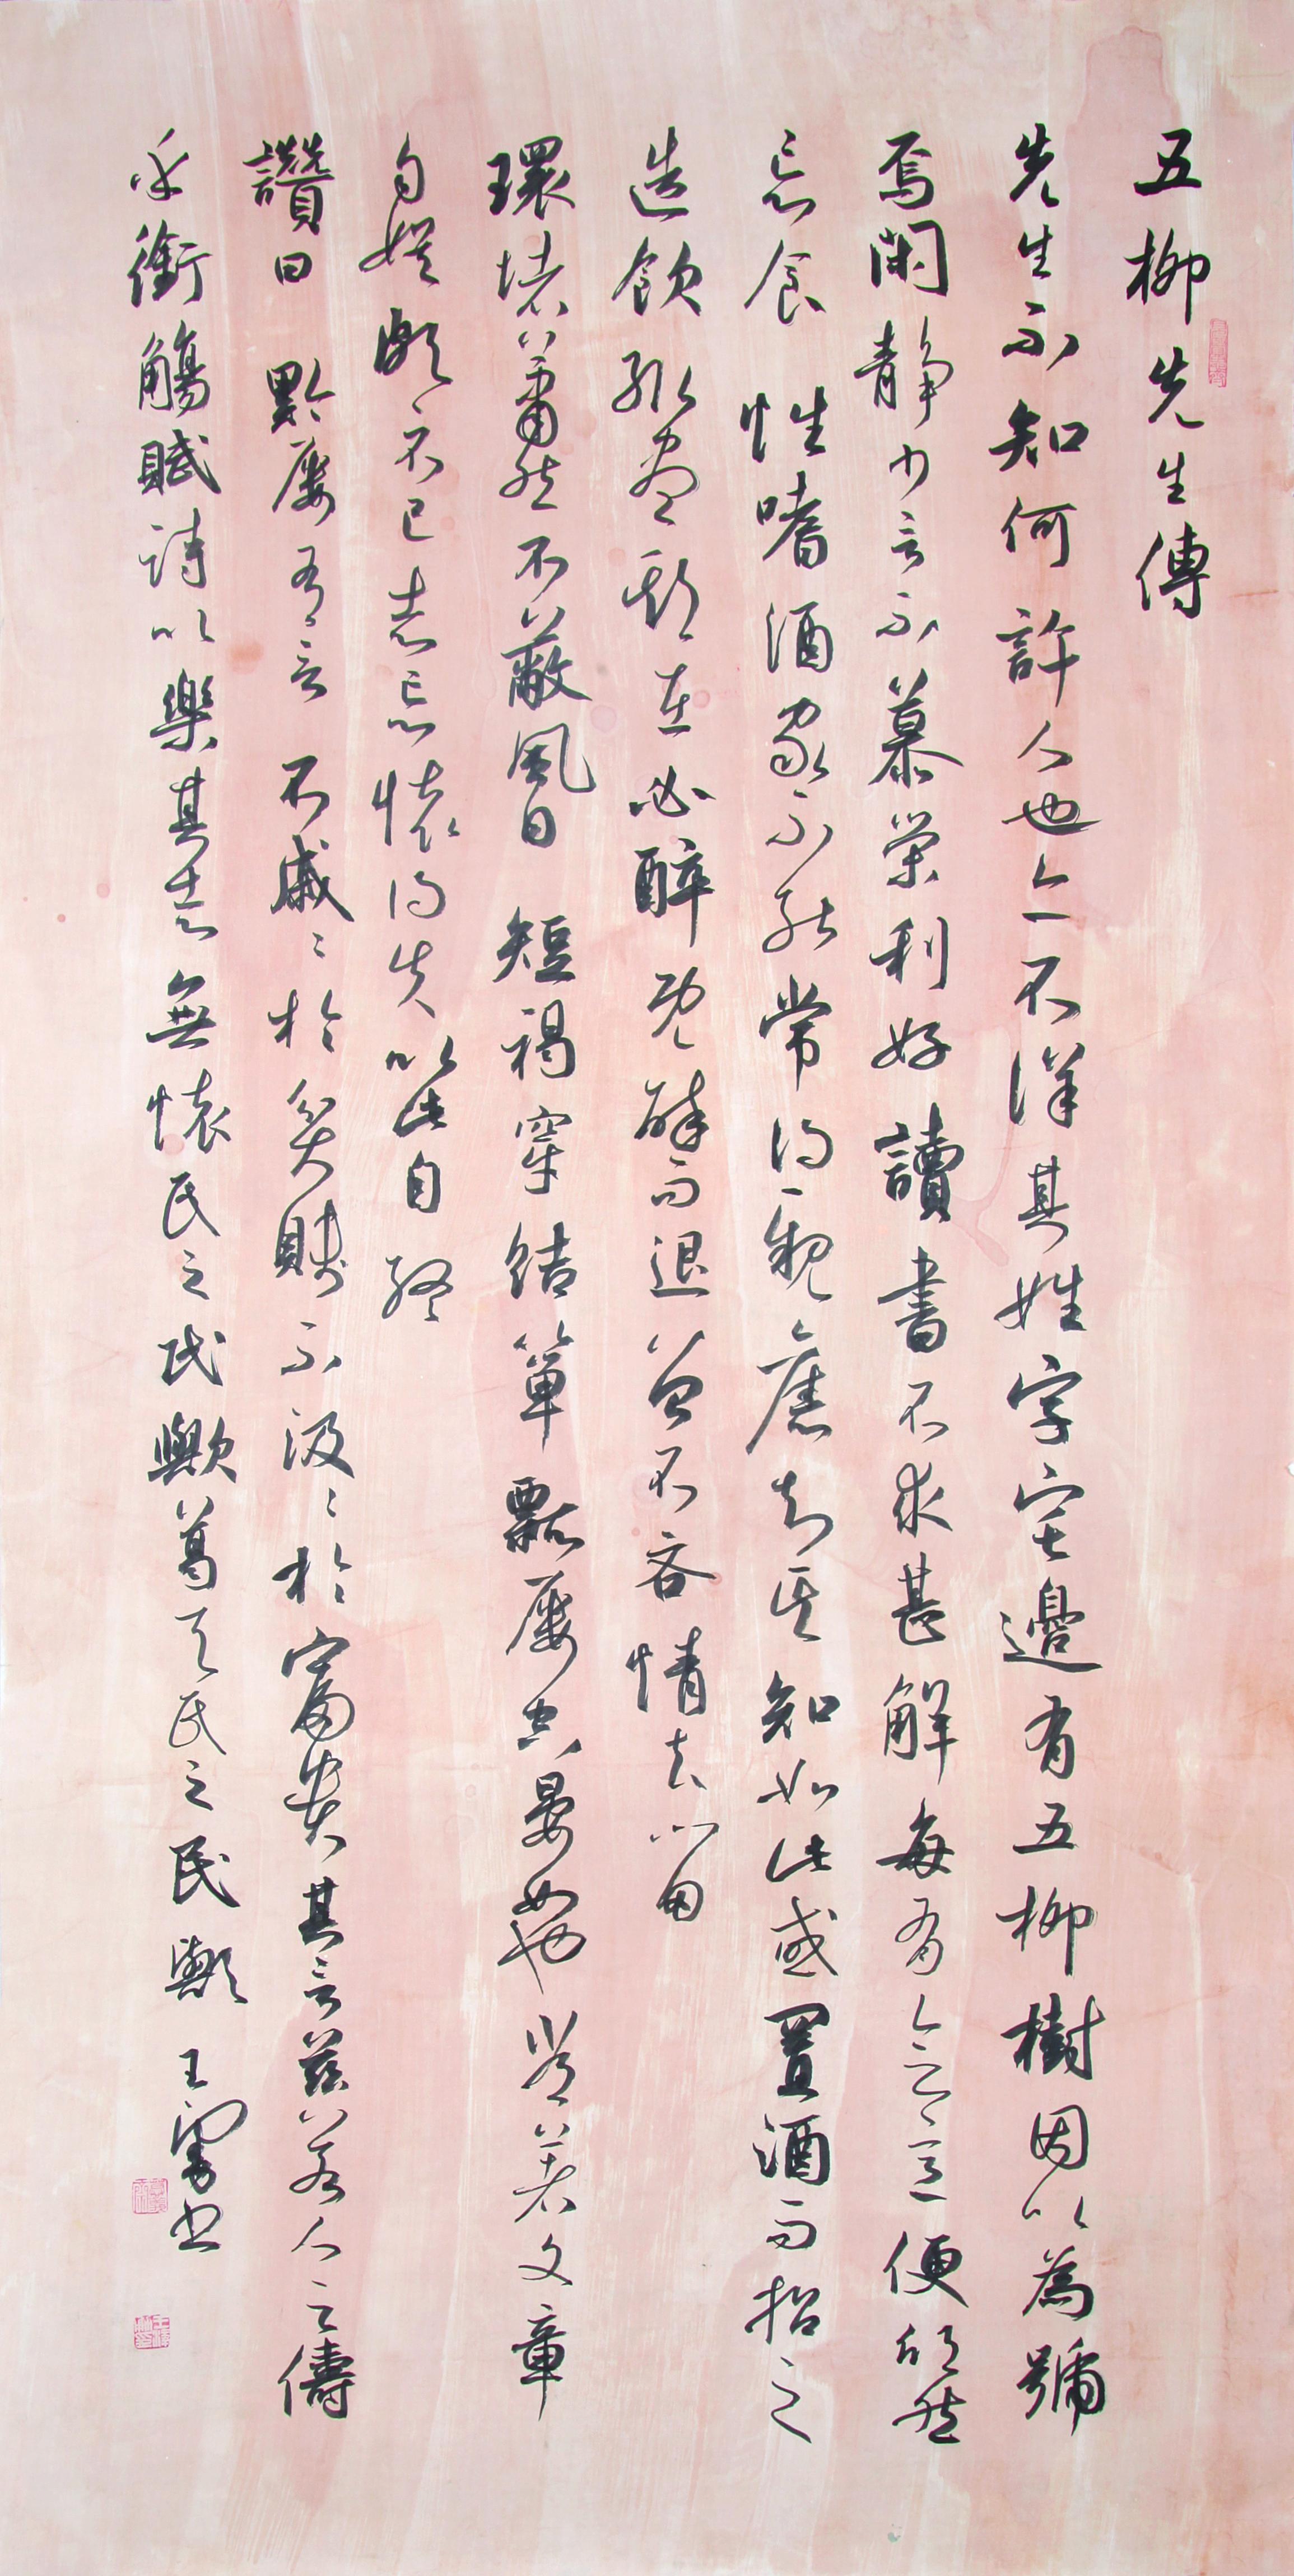 五柳先生傳
先生不知何許人也亦不詳其姓字宅邊有五柳樹因以為號
焉閑靜少言不慕榮利好讀書不求甚解每有會意便欣然
忘食 性嗜酒家不能常得親舊知其知如此或置酒而招之
造飲輒盡期在必醉既醉而退曾不吝情去留
環堵蕭然不蔽風日 短褐穿結簞瓢屢空晏如也常著文章
自娛頗示己志忘懷得失以此自終
讚曰 黔屢有言 不戚〻於貧賤不汲〻於富貴其言茲若人之儔
乎銜觴賦詩以樂其志無懷氏之民歟葛天氏之民歟 王